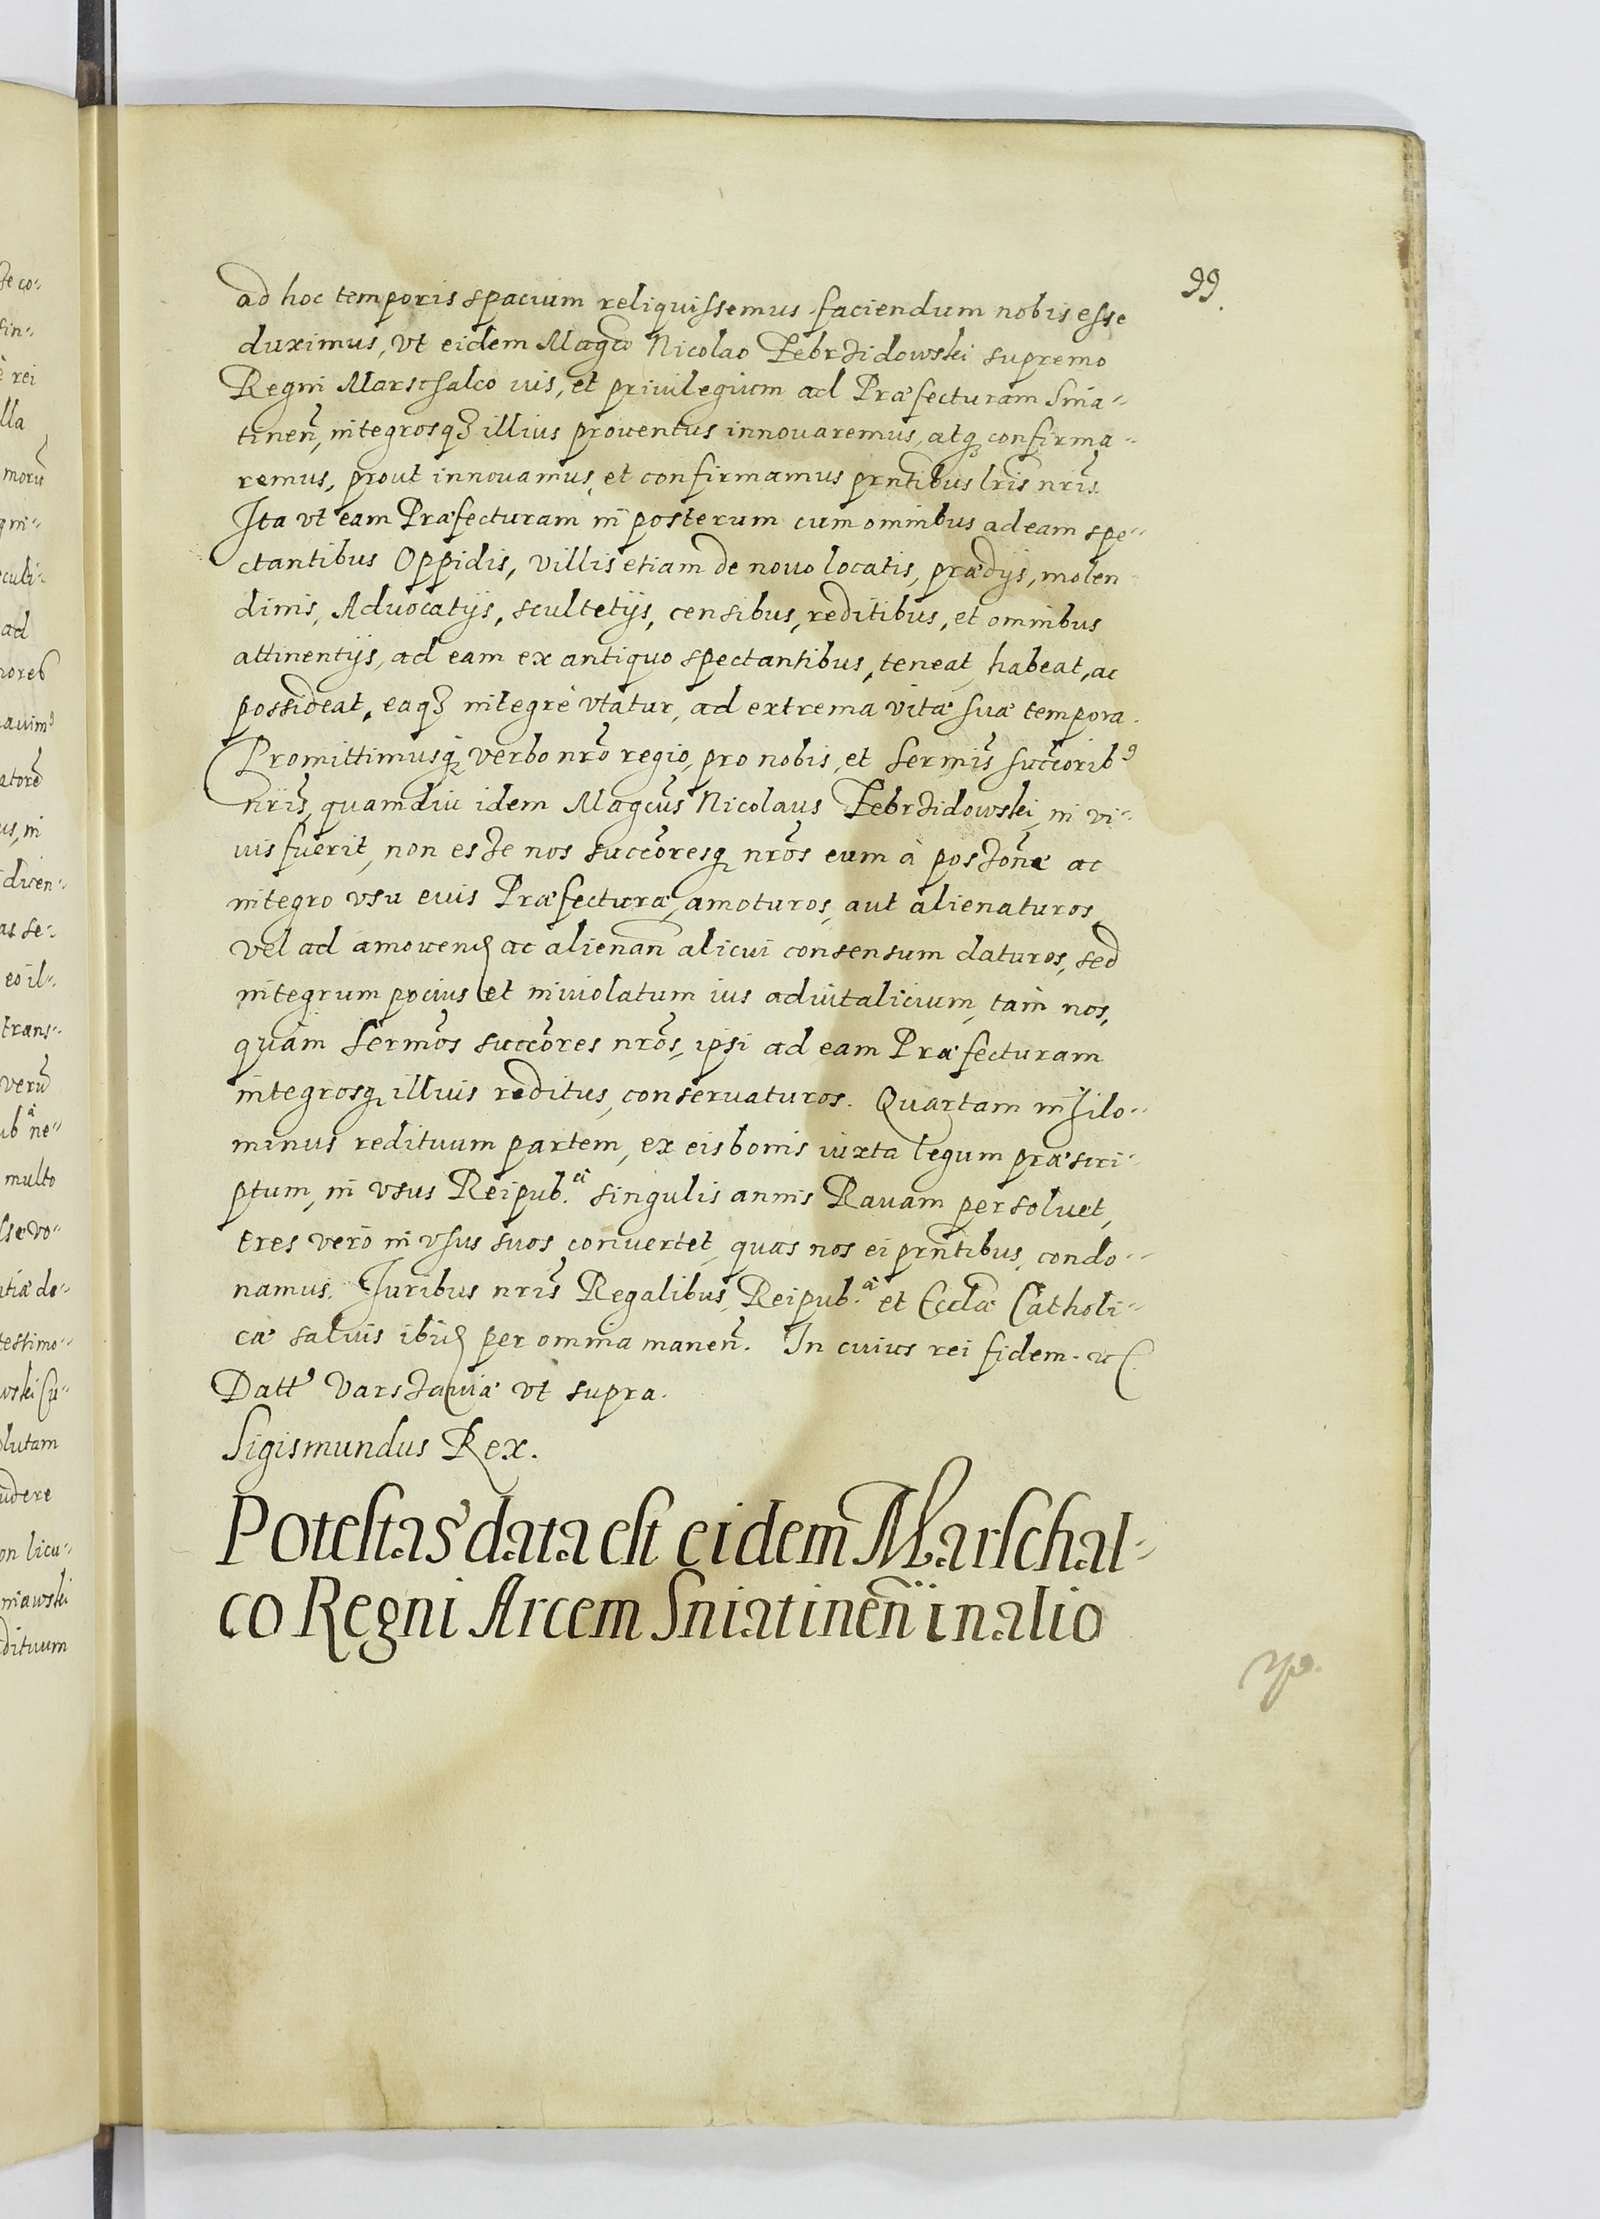 99.
ad hoc temporis spacium reliquissemus faciendum nobis esse
duximus, vt eidem Magco Nicolao Zebrzidowski supremo
Regni Marschalco ius, et priuilegium ad Præfecturam Snia-
tinen̄, integrosq₃ illius prouentus innouaremus, atq₃ confirma-
remus, prout innouamus, et confirmamus prntibus lris nris.
Ita vt eam Præfecturam in posterum cum omnibus ad eam spe-
ctantibus Oppidis, villis etiam de nouo locatis, prædijs, molen
dinis, Aduocatijs, scultetijs, censibus, reditibus, et omnibus
attinentijs, ad eam ex antiquo spectantibus, teneat, habeat, ac
possideat, eaq₃ integrè vtatur, ad extrema vitæ suæ tempora.
Promittimusq₃ verbo nro regio, pro nobis, et Sermis succorib⁹
nris, quamdiu idem Magcus Nicolaus Zebrzidowski, in vi-
uis fuerit, non esse nos succoresq₃ nros eum à possone ac
integro vsu euis Præfecturæ, amoturos, aut alienaturos,
vel ad amouend ac alienan̄ alicui consensum daturos, sed
integrum pocius et inuiolatum ius aduitalicium, tam nos,
quàm Sermos succores nros, ipsi ad eam Præfecturam
integrosq₃ illius reditus, conseruaturos. Quartam nihilo-
minus redituum partem, ex eis bonis iuxta legum præscri-
ptum, in vsus Reipub.æ singulis annis Rauam persoluet,
tres verò in vsus suos conuertet, quas nos ei prntibus, condo-
namus. Iuribus nris Regalibus, Reipub.æ et Ecclæ Catholi-
cæ saluis ibid per omnia manen̄. In cuius rei fidem. etc.
Datt' Varssauiæ vt supra.
Sigismundus Rex.
Potestas data est eidem Marschal-
co Regni Arcem Sniatinen̄ in alio